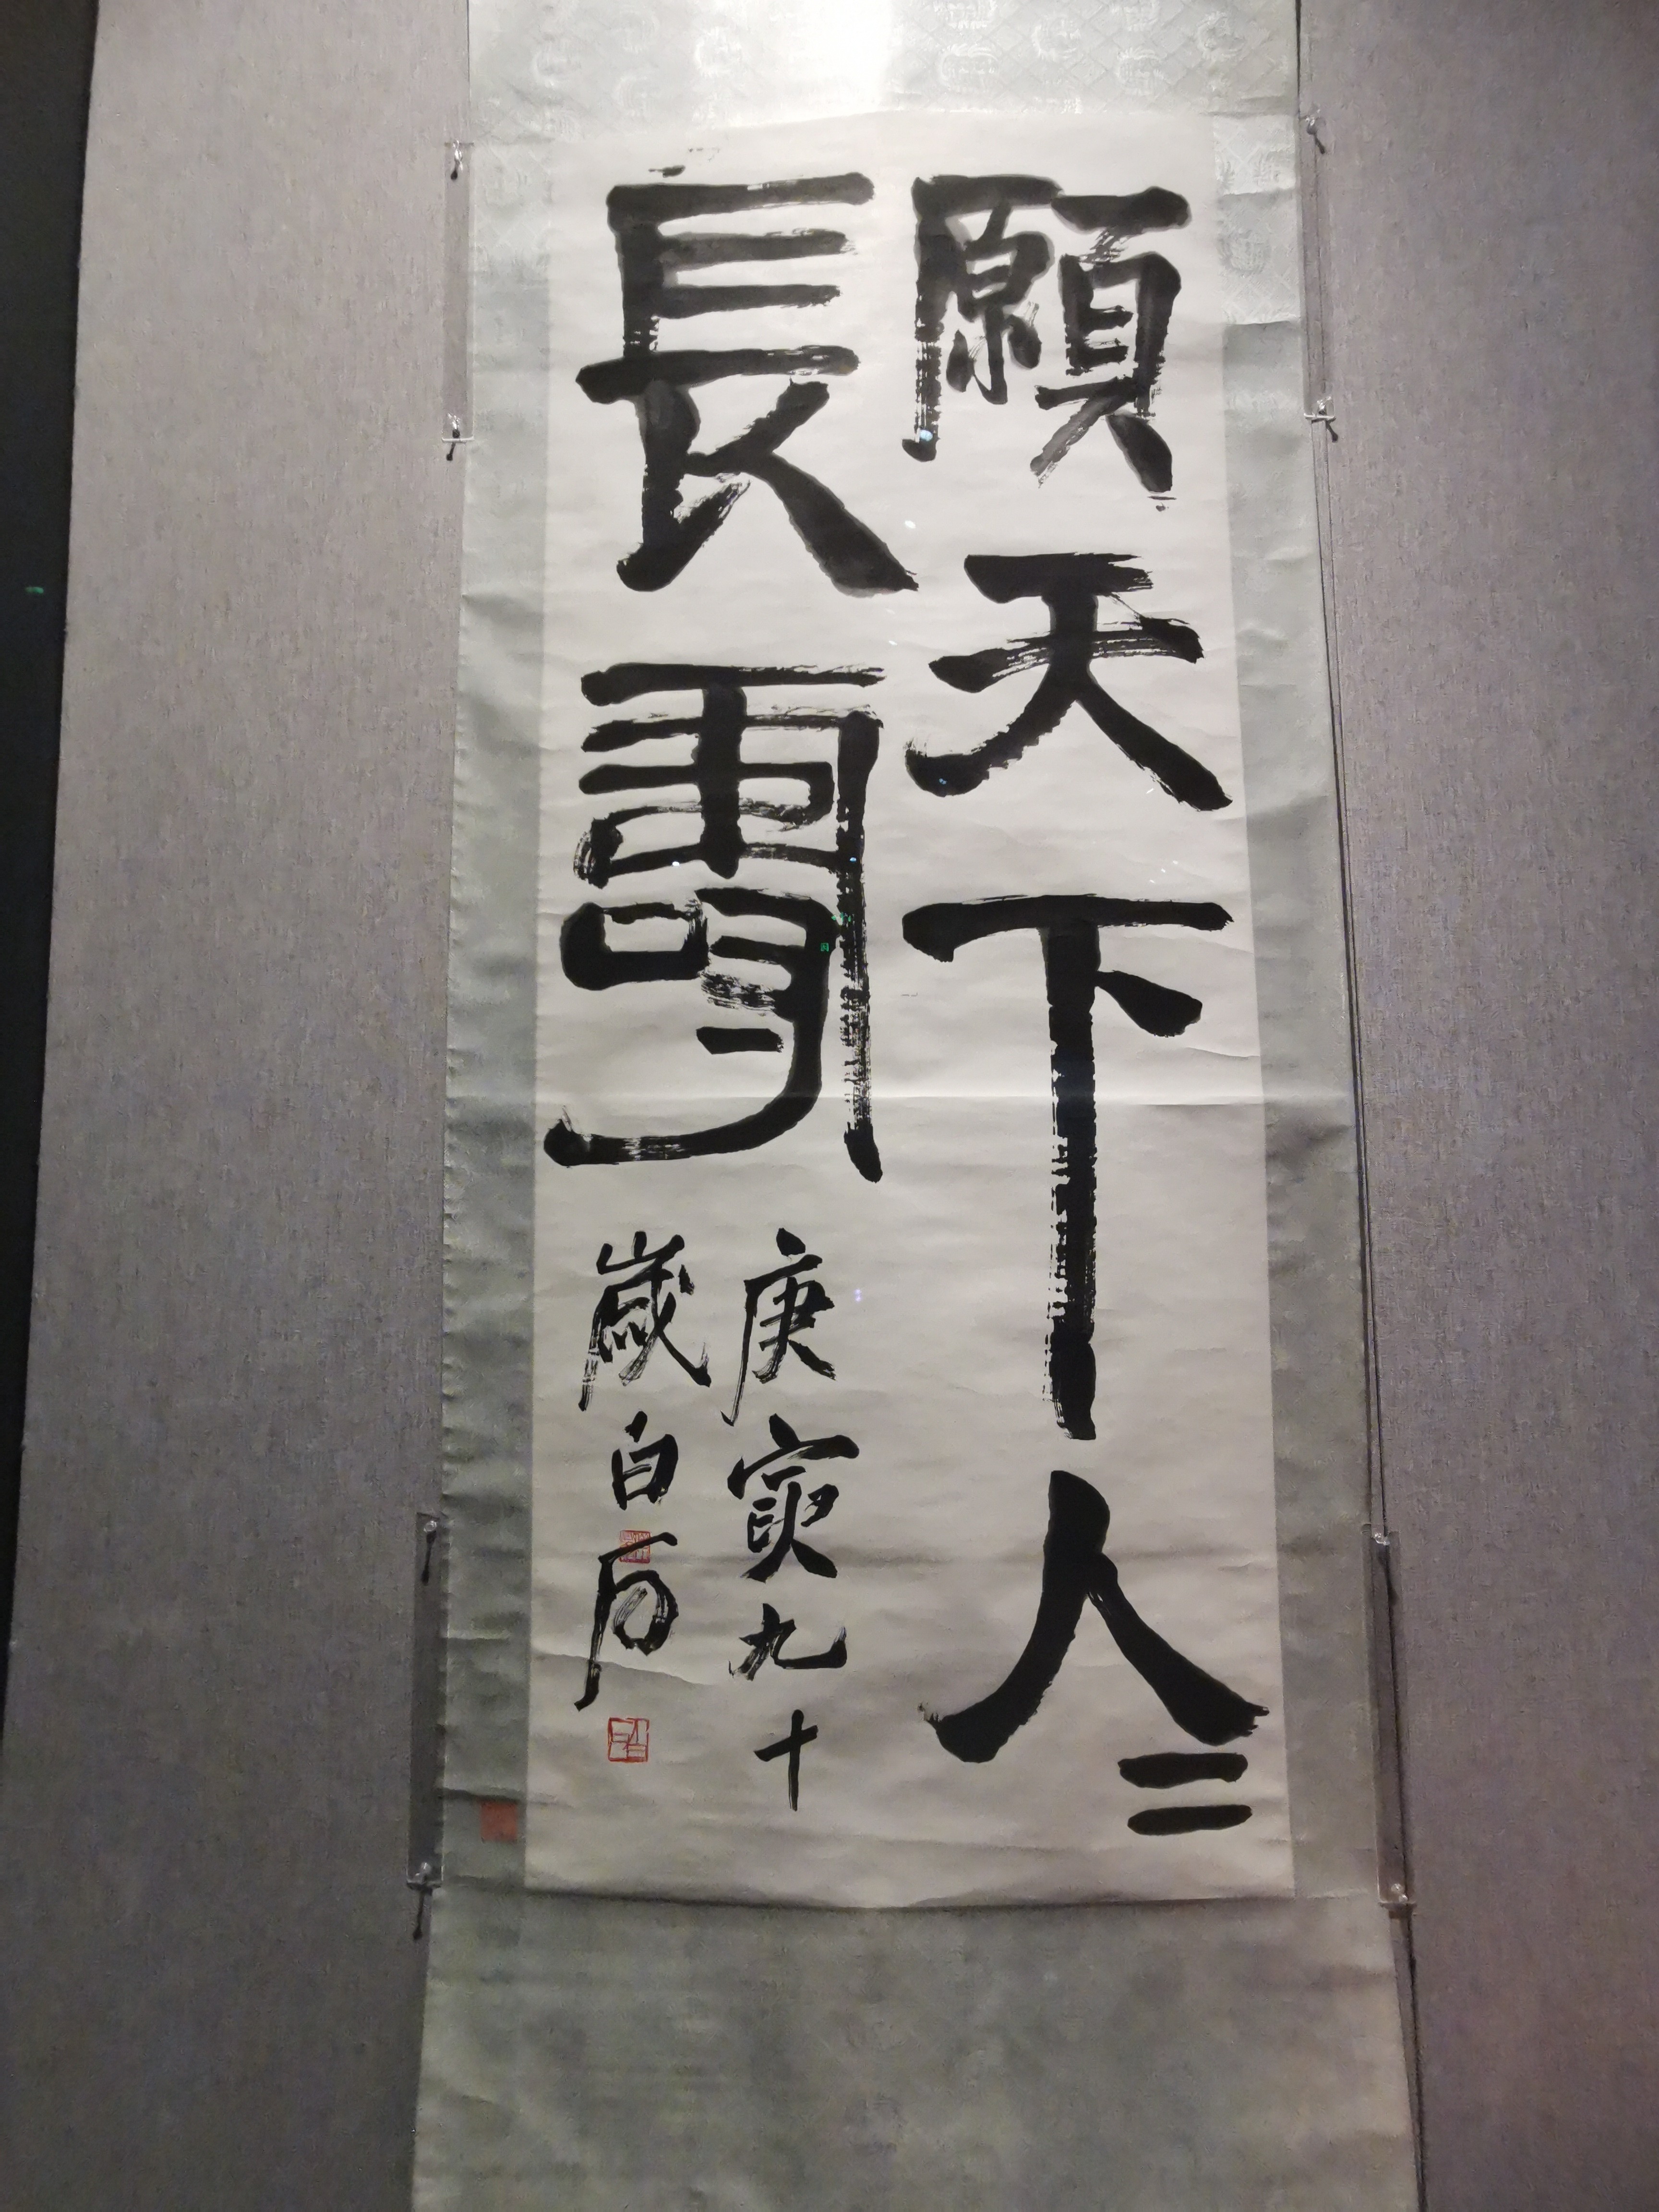 願天下人人
長壽
庚寅九十
歲白石